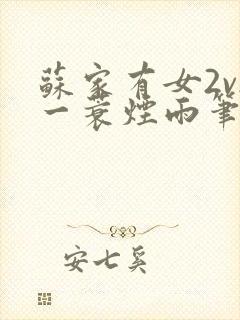 蘇家有女2v
一蓑煙雨筆
安七奚